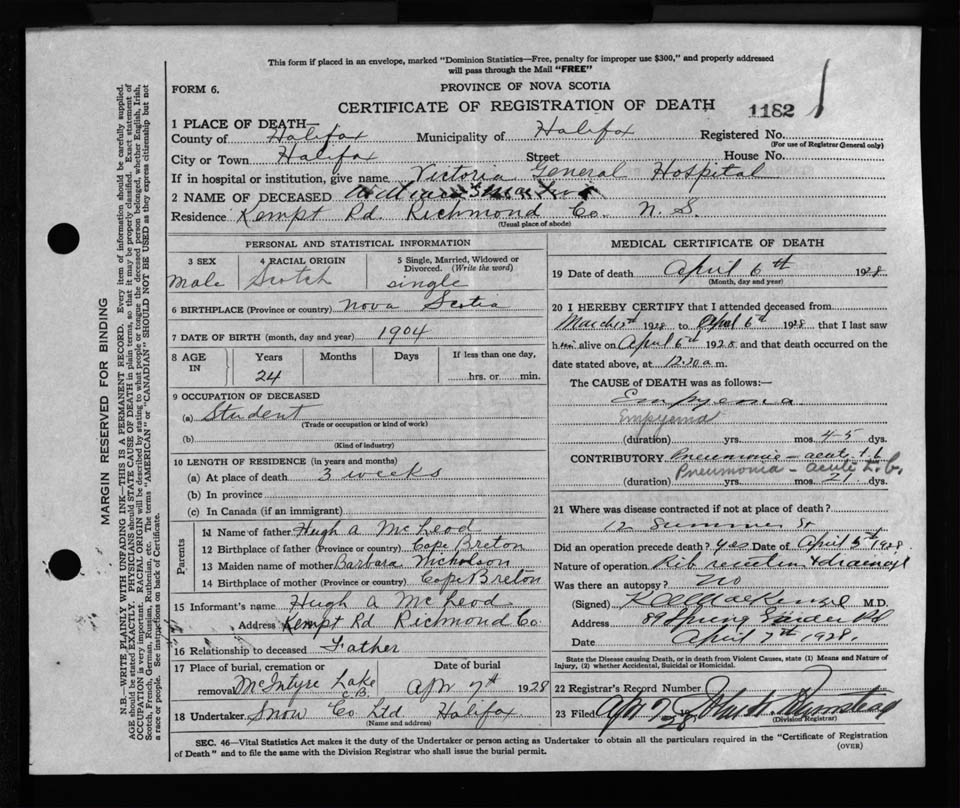 This form if placed in an envelope, marked "Dominion Statistics—Free, penalty for improper use $300," and properly addressed
will pass through the Mail "FREE"
FORM 6.
PROVINCE OF NOVA SCOTIA
CERTIFICATE OF REGISTRATION OF DEATH
1182
1 PLACE OF DEATH—
County of Halifax Municipality of Halifax Registered No.
(For use of Registrar General only)
City or Town Halifax Street House No.
If in hospital or institution, give name Victoria General Hospital
2 NAME OF DECEASED
Residence Kempt Rd. Richmond Co. N. S.
(Usual place of abode)
PERSONAL AND STATISTICAL INFORMATION
3 SEX
Male
4 RACIAL ORIGIN
Scotch
5 Single, Married, Widowed or
Divorced. (Write the word)
single
6 BIRTHPLACE (Province or country) Nova Scotia
7 DATE OF BIRTH (month, day and year) 1904
8 AGE
IN
Years
24
Months
Days
If less than one day,
hrs. or min.
9 OCCUPATION OF DECEASED
(a) Student
(Trade or occupation or kind of work)
(b)
(Kind of industry)
10 LENGTH OF RESIDENCE (in years and months)
(a) At place of death 3 weeks
(b) In province
(c) In Canada (if an immigrant)
Parents
11 Name of father Hugh A McLeod
12 Birthplace of father (Province or country) Cape Breton
13 Maiden name of mother Barbara Nicholson
14 Birthplace of mother (Province or country) Cape Breton
15 Informant's name Hugh A McLeod
Address Kempt Rd Richmond Co.
16 Relationship to deceased Father
17 Place of burial, cremation or
removal McIntyre Lake
C.B.
Date of burial
Apr 7th 1928
18 Undertaker Snow Co Ltd Halifax
(Name and address)
MEDICAL CERTIFICATE OF DEATH
19 Date of death April 6th 1928
(Month, day and year)
20 I HEREBY CERTIFY that I attended deceased from
March 1928 to April 6th 1928 that I last saw
him alive on April 6th 1928 and that death occurred on the
date stated above, at 12:20 a m.
The CAUSE OF DEATH was as follows:—
Empyema
Empyema
(duration) yrs. mos. 4-5 dys.
CONTRIBUTORY Pneumonia - acute t.b
Pneumonia - acute t.b.
(duration) yrs. mos. 21 dys.
21 Where was disease contracted if not at place of death?
12 Summer St
Did an operation precede death? yes Date of April 5th 1928
Nature of operation Rib
Was there an autopsy? No
(Signed) MacKenzie M.D.
Address 89 Spring Garden Rd
Date April 7th 1928.
State the Disease causing Death, or in death from Violent Causes, state (1) Means and Nature of
Injury, (2) whether Accidental, Suicidal or Homicidal.
22 Registrar's Record Number
23 Filed Apr 7 28
(Division Registrar)
SEC. 46—Vital Statistics Act makes it the duty of the Undertaker or person acting as Undertaker to obtain all the particulars required in the "Certificate of Registration
of Death" and to file the same with the Division Registrar who shall issue the burial permit.
(OVER)
MARGIN RESERVED FOR BINDING
N.B.—WRITE PLAINLY WITH UNFADING INK—THIS IS A PERMANENT RECORD. Every item of information should be carefully supplied.
AGE should be stated EXACTLY. PHYSICIANS should STATE CAUSE OF DEATH in plain terms, so that it may be properly classified. Exact statement of
OCCUPATION is very important. RACIAL ORIGIN will be described by stating to what people or tongue the deceased person belonged, whether English, Irish,
Scotch, French, German, Russian, Ruthenian, etc. The terms "AMERICAN" or "CANADIAN" SHOULD NOT BE USED as they express citizenship but not
a race or people. See instructions on back of Certificate.